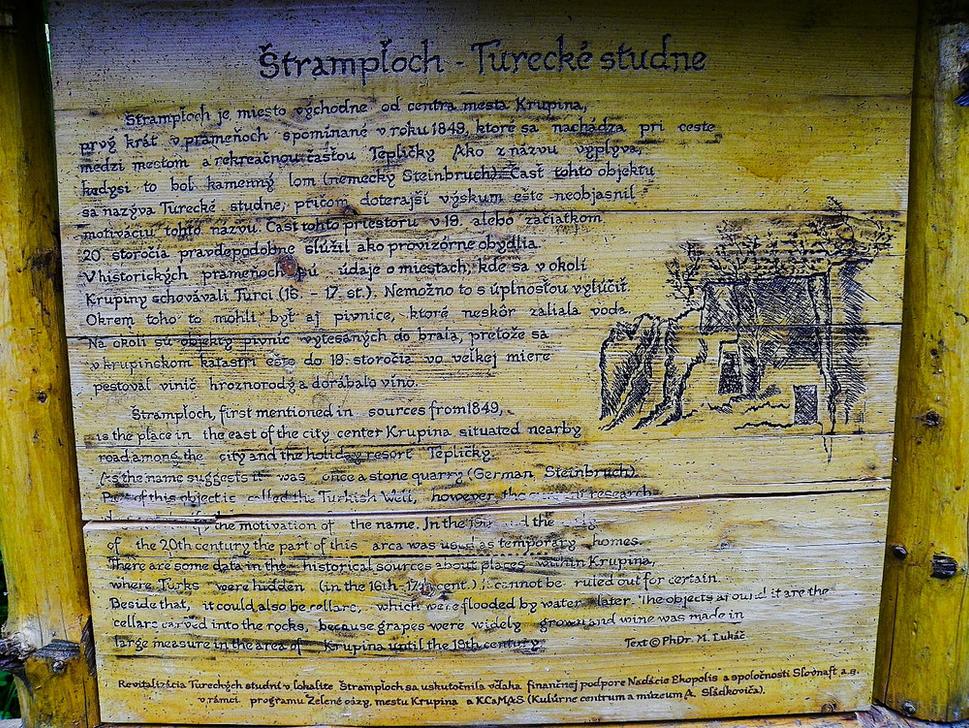 Štrampľoch - Turecké studne
Štrampľoch je miesto východne od centra mesta Krupina,
prvý krát v prameňoch spomínané v roku 1849, ktoré sa nachádza pri ceste
medzi mestom a rekreačnou časťou Tepličky. Ako z názvu vyplýva,
kedysi to bol kamenný lom (nemecky Steinbruch). Časť tohto objektu
sa nazýva Turecké studne, pričom doterajší výskum ešte neobjasnil
motiváciu tohto názvu. Časť tohto priestoru v 19. alebo začiatkom
20 storočia pravdepodobne slúžil ako provizórne obydlia.
V historických prameňoch sú údaje o miestach, kde sa v okolí
Krupiny schovávali Turci (16. - 17. st.). Nemožno to s úplnosťou vylúčiť.
Okrem toho to mohli byť aj pivnice, ktoré neskôr zaliala voda.
Na okolí sú objekty pivníc vytesaných do brala, pretože sa
v krupinskom katastri ešte do 19. storočia vo veľkej miere
pestoval vinič hroznorodý a dorábalo víno.
Štrampľoch, first mentioned in sources from 1849,
is the place in the east of the city center Krupina situated nearby
road among the city and the holiday resort Tepličky.
As the name suggests it was once a stone quarry (German Steinbruch).
Part of this object is called the Turkish Well, however, the current research
the motivation of the name. In the 19th and the
of the 20th century the part of this area was used as temporary homes.
There are some data in the historical sources about places within Krupina,
where Turks were hidden (in the 16th - 17th cent.). It cannot be ruled out for certain.
Beside that, it could also be cellars, which were flooded by water later. The objects around it are the
cellars carved into the rocks, because grapes were widely grown and wine was made in
large measure in the area of Krupina until the 19th century.
Text © PhDr. M. Lukáč
Revitalizácia Tureckých studní v lokalite Štrampľoch sa uskutočnila vďaka finančnej podpore Nadácie Ekopolis a spoločnosti Slovnaft a.s.
v rámci programu Zelené oázy, mestu Krupina a KCaMAS (Kultúrne centrum a múzeum A. Sládkoviča).